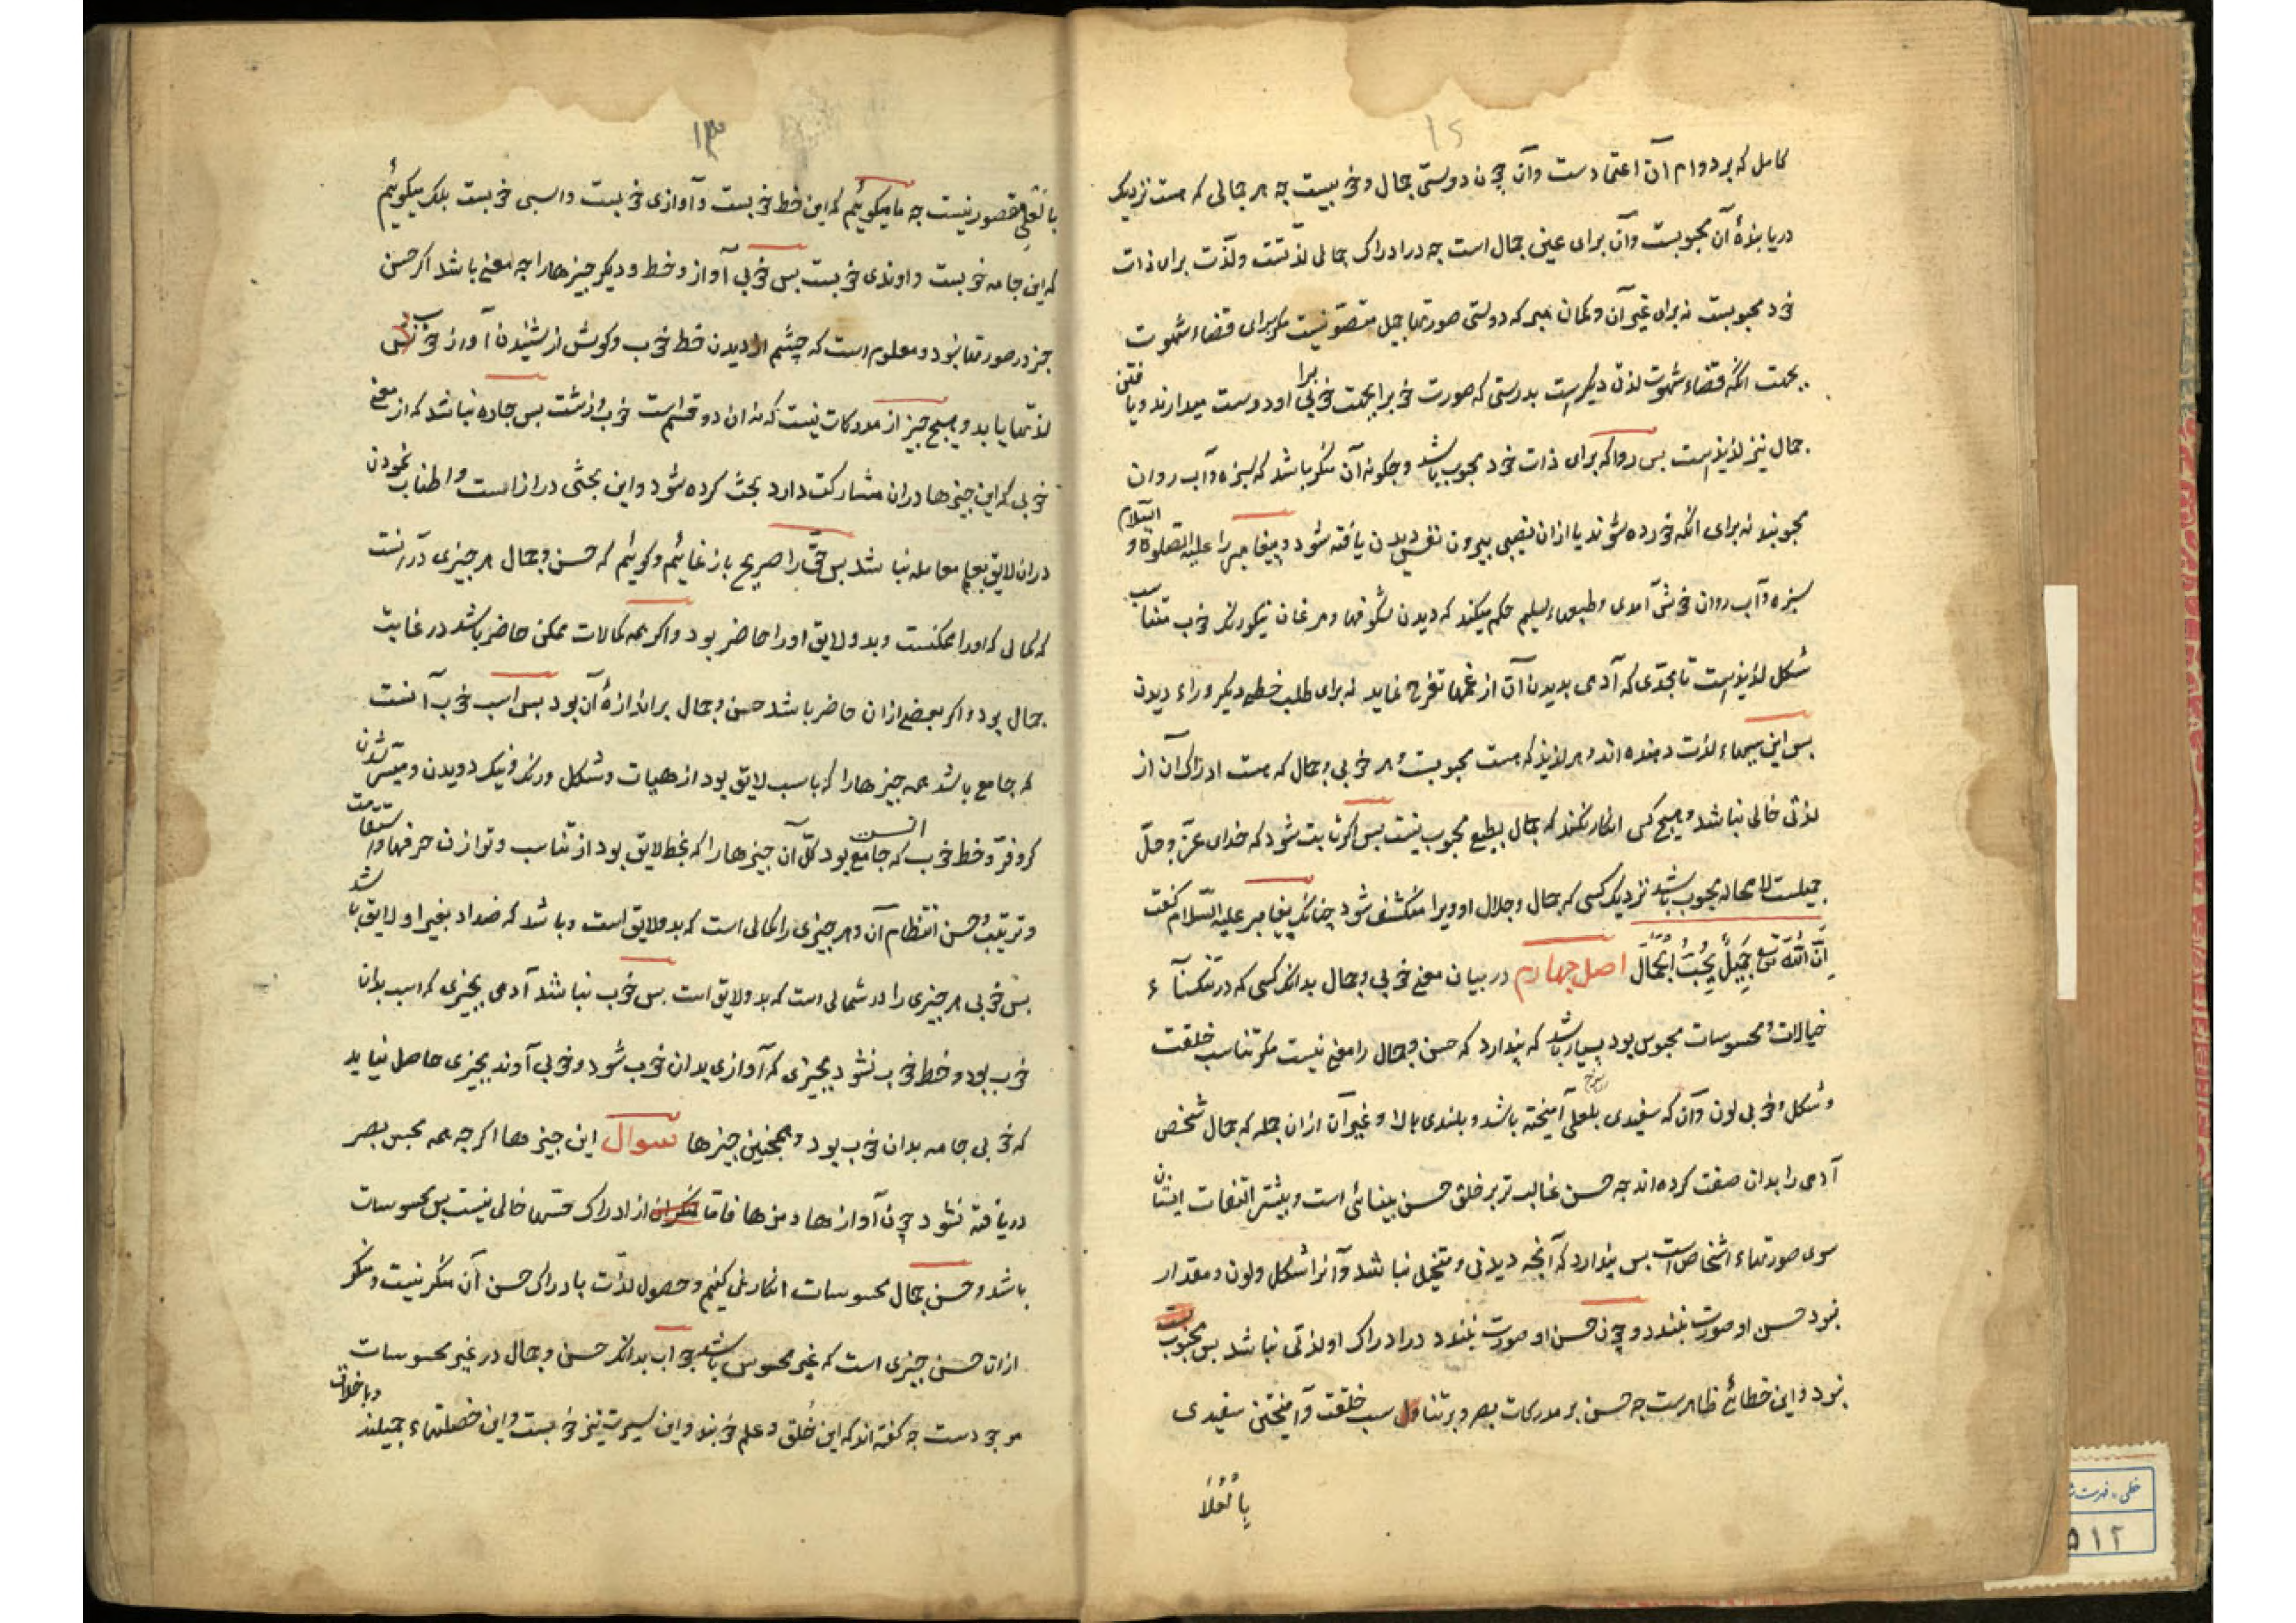 ۱۲
کامل که بر دوام آن اعتمادست وآن چون دوستی جمال وخوبیست چه هر جمالی که هست نزدیک
دریابندهٔ آن محبوبست وآن برای عین جمال است چه در ادراک جمالی لذّتست ولذّت برای ذات
خود محبوبست نه برای غیر آن وکمان مبر که دوستی صورتها جمیل متصوّر نیست مکر برای قضاء شهوت
بجهت انکه قضاء شهوت لذتی دیکرست بدرستی که صورت خوب را بجهت خوبی او دوست میدارند ویافتن
جمال نیز لذیذست بس روا که برای ذات خود محبوب باشد وچکونه آن منکر باشد که سبزه وآب روان
محبوبند نه برای انکه خورده شوند یا ازان نصیبی بیرون نفس دیدن یافته شود وپیغامبر را علیه الصلوة و السّلام
سبزه وآب روان خوش آمدی وطبعهاء سلیم حکم میکند که دیدن شکوفها ومرغان نیکو رنک خوب متناسب
شکل لذیذست تا بحدّی که آدمی بدیدن آن از غمها تفرج نماید نه برای طلب حظی دیکر وراء دیدن
بس این سببهاء لذت دهنده اند وهر لذیذ که هست محبوبست وهر خوبی وجمال که هست ادراک آن از
لذتی خالی نباشد وهیچ کس انکار نکند که جمال بطبع محبوب نیست بس اکر ثابت شود که خدای عزّ وجلّ
جمیلست لا محاله محبوب باشد نزدیک کسی که جمال وجلال او ویرا منکشف شود چنانکه پیغامبر علیه السّلام کفت
اِنَّ اللّٰهَ تع جَمِیْلٌ یُحِبُّ الْجَمَالَ اصل چهارم در بیان معنی خوبی وجمال بدانکه کسی که در تنکناء
خیالات ومحسوسات محبوس بود بسیار باشد که بندارد که حسن وجمال را معنی نیست مکر تناسب خلقت
وشکل وخوبی لون وآن که سفیدی بلعلی سرخ آمیخته باشد وبلندی بالا وغیر آن ازان جمله که جمال شخص
آدمی را بدان صفت کرده اند چه حسن غالب تر بر خلق حسن بینائی است وبیشتر التفات ایشان
سوی صورتهاء اشخاص است بس بندارد که آنچه دیدنی ومتخیل نباشد وآنرا شکل ولون ومقدار
نبود حسن او صورت نبندد وچون حسن او صورت نبندد در ادراک او لذتی نباشد بس محبوب
نبود واین خطائی ظاهرست چه حسن بر مدرکات بصر وبر تناسب خلقت وآمیختن سفیدی
۱۳
مقصور نیست چه ما میکوئیم که این خط خوبست وآوازی خوبست واسبی خوبست بلکه میکوئیم
که این جامه خوبست واوندی خوبست بس خوبی آواز وخط ودیکر چیزها را چه معنی باشد اکر حسن
جز در صورتها نبود ومعلوم است که چشم از دیدن خط خوب وکوش از شنیدن آواز خوش
لذّتها یابد وهیچ چیز از مدرکات نیست که نه آن دو قسم است خوب وزشت بس چاره نباشد که از معنی
خوبی که این چیزها دران مشارکت دارد بحث کرده شود واین بحثی دراز است واطناب نمودن
دران لایق بعلم معامله نباشد بس حق را صریح باز نمائیم وکوئیم که حسن وجمال هر چیزی درآنست
که کمالی که اورا ممکنست وبدو لایق اورا حاضر بود واکر همه کمالات ممکن حاضر باشد در غایت
جمال بود واکر بعضی ازان حاضر باشد حسن وجمال بر اندازهٔ آن بود بس اسب خوب آنست
که جامع باشد همه چیزها را که باسب لایق بود از هیات وشکل ورنک ونیک دویدن ومیسّر شدن
کر وفرّ وخط خوب آنست که جامع بود کلّ آن چیزها را که بخط لایق بود از تناسب وتوازن حرفها واستقامت
وترتیب وحسن انتظام آن وهر چیزی را کمالی است که بدو لایق است وباشد که ضد او بغیر او لایق باشد
بس خوبی هر چیزی را در کمالی است که بدو لایق است بس خوب نباشد آدمی بچیزی که اسب بدان
خوب بود وخط خوب نشود بچیزی که آوازی بدان خوب شود وخوبی آوند بچیزی حاصل نیاید
که خوبی جامه بدان خوب بود وهمچنین چیزها سوال این چیزها اکر چه همه بحس بصر
دریافته نشود چون آوازها ومزها فامّا از ادراک حسّها خالی نیست بس محسوسات
باشد وحسن وجمال محسوسات انکار نمی کنیم وحصول لذّت بادراک حسن آن منکر نیست ومنکر
ازان حسن چیزی است که غیر محسوس باشد جواب بدانکه حسن وجمال در غیر محسوسات
موجودست چه کفته اند که این خُلق وعلم خوبند واین سیرت نیز خوبست واین خصلتهاء جمیلند وباخلاق